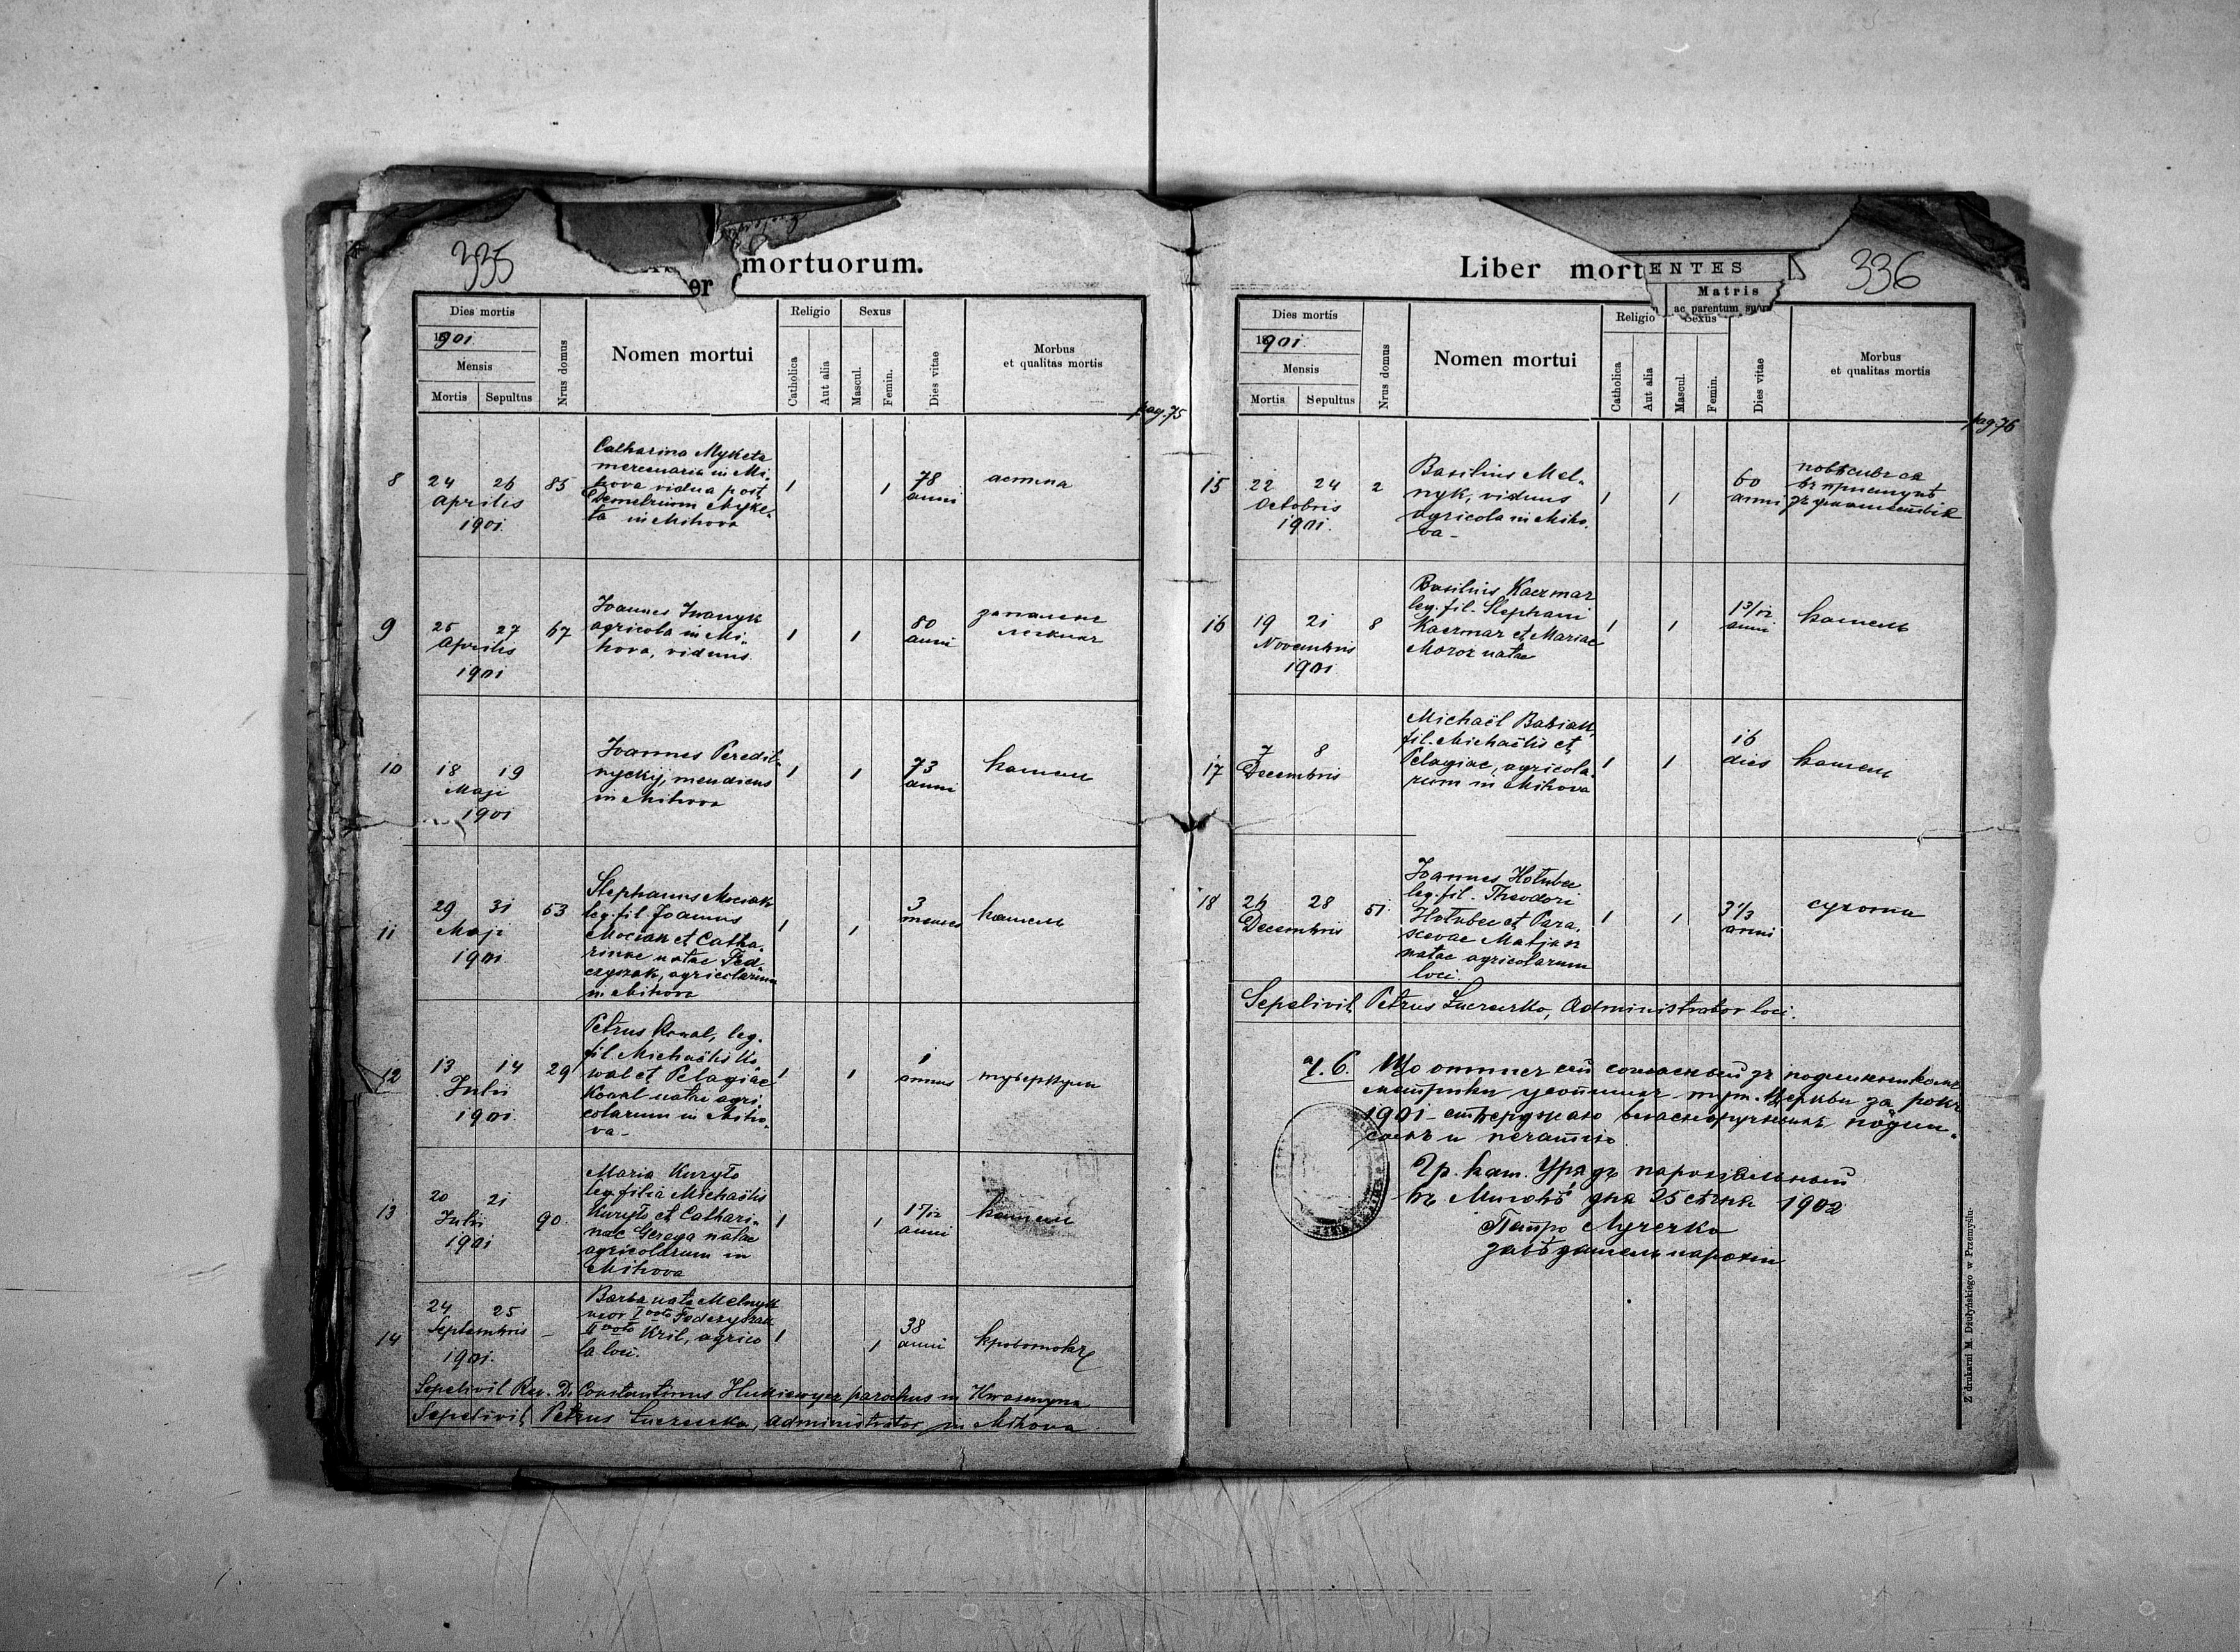 335
mortuorum.
er
Dies mortis
1901
Mensis
Mortis
Sepultus
Nrus domus
Nomen mortui
Religio
Catholica
Aut alia
Sexus
Mascul.
Femin.
Dies vitae
Morbus
et qualitas mortis
pag. 75
8
24 26
Aprilis
1901.
85
Catharina Myketa
mercenaria in Mi-
hova vidua post
Demetrium Myke-
ta in Mihova
1
1
78
anni
астма
9
25 27
Aprilis
1901
67
Joannes Iwanyk
agricola in Mi-
hova, viduus.
1
1
80
anni
запалене
легких
10
18 19
Maji
1901
Joannes Peredil-
nyckyj, mendicus
in Mihova
1
1
73
anni
кашель
11
29 31
Maji
1901.
53
Stephanus Mociak
leg. fil. Joannis
Mociak et Catha-
rinae natae Fed-
czyszak, agricolarum
in Mihova
1
1
3
menses
кашель
12
13 14
Julii
1901.
29
Petrus Kowal, leg.
fil. Michaëlis Ko-
wal et Pelagiae
Kowal natae agri-
colarum in Miho-
va -
1
1
1
annus
туберкули
13
20 21
Julii
1901
90.
Maria Kuryło
leg. filia Michaëlis
Kuryło et Cathari-
nae Gerega natae
agricolarum in
Mihova
1
1
1 7/12
anni
кашель
14
24 25
Septembris
1901.
-
Barba nata Melnyk
uxor I voto Fedczyszak
II voto Kril, agrico
la loci.
1
1
38
anni
кровотокъ
Sepelivit Rev. D. Constantinus parochus in Kwaszenyna
Sepelivit Petrus Łuczeczko, administrator in Mihova.
336
Liber mort
ENTES
Matris
ac parentum suor
Dies mortis
1901.
Mensis
Mortis
Sepultus
Nrus domus
Nomen mortui
Religio
Catholica
Aut alia
Sexus
Mascul.
Femin.
Dies vitae
Morbus
et qualitas mortis
pag. 76
15
22 24
Octobris
1901.
2
Basilius Mel-
nyk, viduus
agricola in Miho-
va -
1
1
60
anni
повѣсився
въ приступѣ
16
19 21
Novembris
1901.
8
Basilius Kaczmar
leg. fil. Stephani
Kaczmar et Mariae
Moroz natae
1
1
1 3/12
anni
кашель
17
7 8
Decembris
Michaël Babiak,
fil. Michaëlis et
Pelagiae, agricola-
rum in Mihova
1
1
16
dies
кашель
18
26 28
Decembris
51.
Joannes Hołubec
leg. fil. Theodori
Hołubec et Para-
scevae Matjak
natae agricolarum
loci.
1
1
3 1/3
anni
сухоти
Sepelivit Petrus Łuczeczko, Administrator loci.
Ч. 6. Що
метрики усопшихъ церкви за рокъ
1901 - стверджаю власноручнымъ подпи-
сомъ и печатію
Гр. кат. Урядъ парохіальный
въ Миговѣ дня 25 сѣчня 1902
Петро Лучечко
завѣдатель парохіи
Z drukarni M. Dżułyńskiego w Przemyślu.